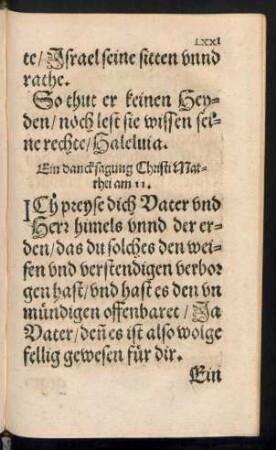 LXXI
te/Israel seine sitten vnnd
rathe.
So thut er keinen Hey-
den/noch lest sie wissen sei-
ne rechte/Haleluia.
Ein dancksagung Christi Mat-
thei am 11.
ICh preyse dich Vater vnd
Herr himels vnnd der er-
den/das du solches den wei-
sen vnd verstendigen verbor
gen hast/vnd hast es den vn
mündigen offenbaret/Ja
Vater/deñ es ist also wolge
fellig gewesen für dir.
Ein